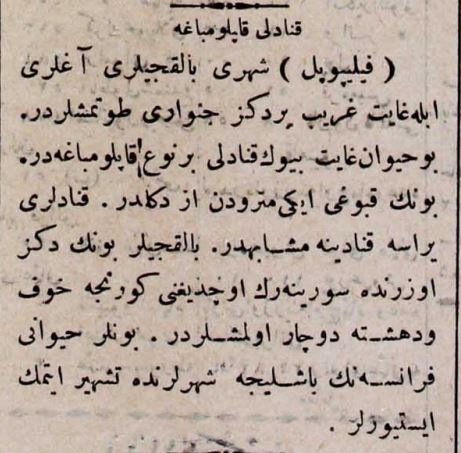 قنادلی قاپلومباغه
( فیلیپویل ) شهری بالقجیلری آغلری
ایله غایت غریب بردكز جنواری طوتمشلردر.
بوحیوان غایت بیوك قنادلی برنوع قاپلومباغه در.
بونك قبوغی ایكی مترودن از دكلدر. قنادلری
یراسه قنادینه مشابهدر. بالقجیلر بونك دكز
اوزرنده سورینه رك اوچدیغنی كورنجه خوف
ودهشته دوچار اولمشلردر . بونلر حیوانی
فرانسه نك باشلیجه شهرلرنده تشهیر ایتمك
ایستیورلر .